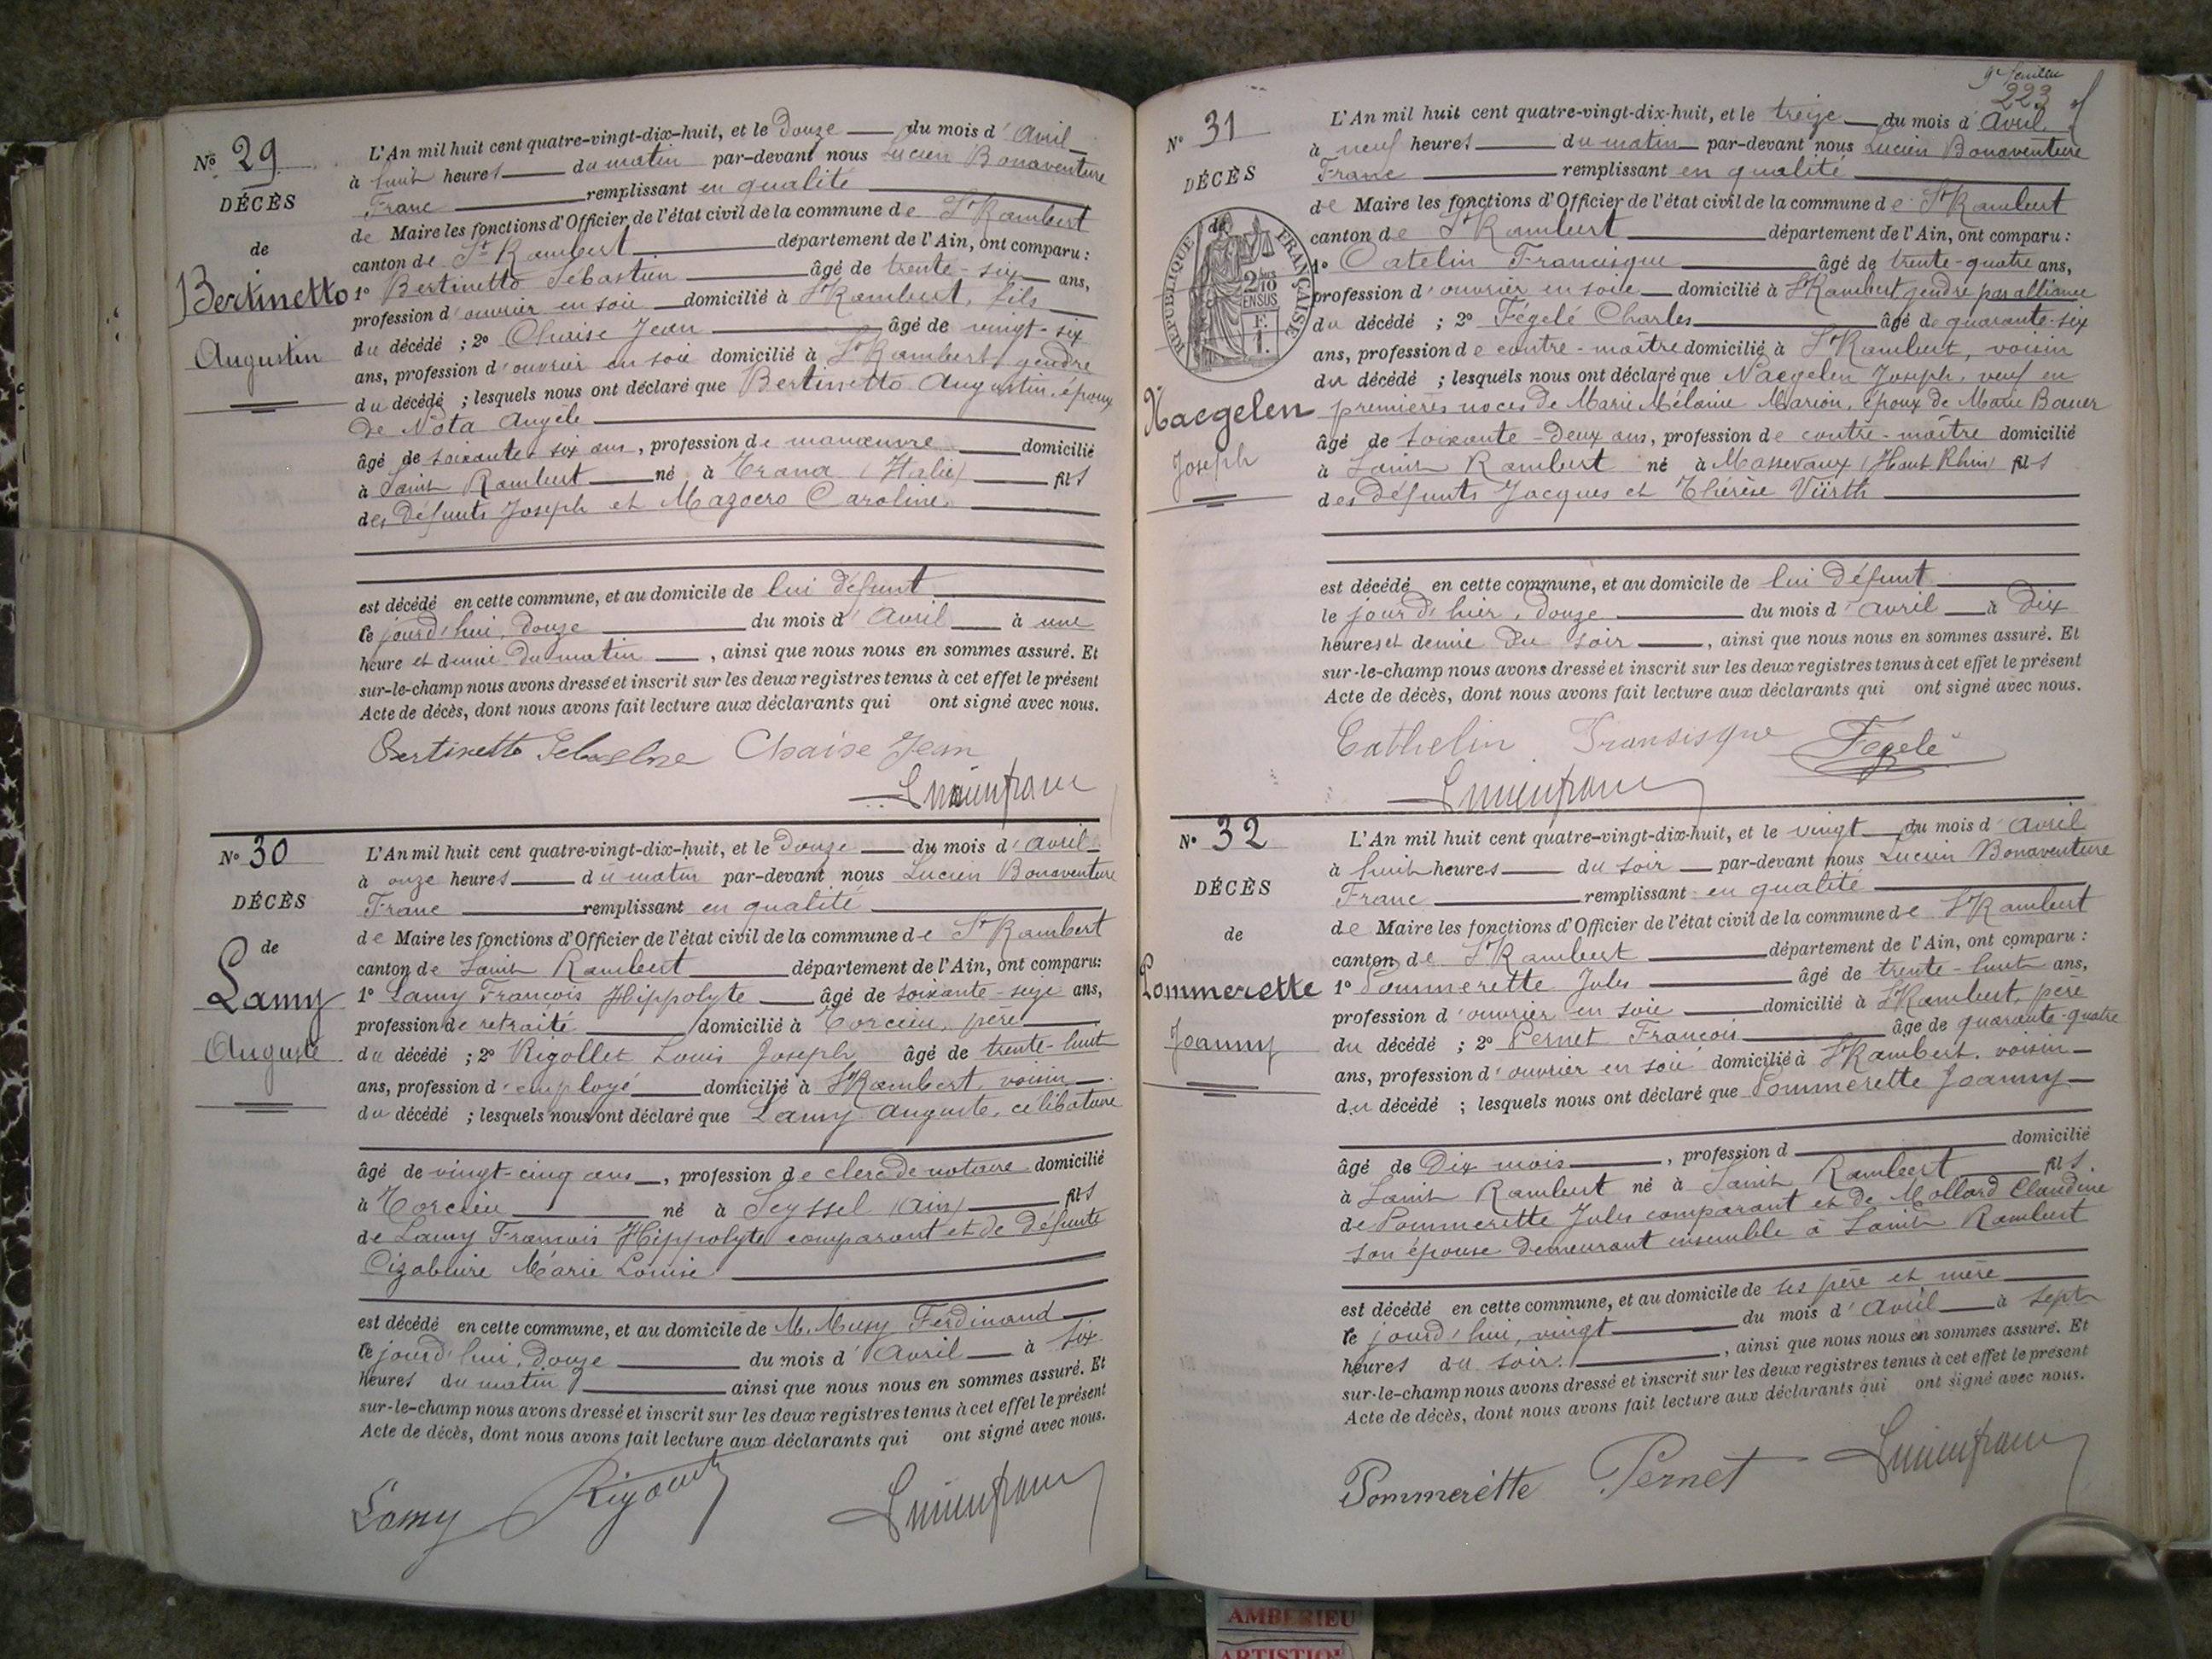 Nº 29
DÉCÈS
de
Bertinetto
Augustin
L'An mil huit cent quatre-vingt-dix-huit, et le douze du mois d'Avril
à huit heures du matin par-devant nous Lucien Bonaventure
Franc remplissant en qualité
de Maire les fonctions d'Officier de l'état civil de la commune de St Rambert
canton de St Rambert département de l'Ain, ont comparu :
1º Bertinetto Sébastien âgé de trente-six ans,
profession d'ouvrier en soie domicilié à St Rambert, fils
du décédé ; 2º Chaise Jean âgé de vingt-six
ans, profession d'ouvrier en soie domicilié à St Rambert, gendre
du décédé ; lesquels nous ont déclaré que Bertinetto Augustin, époux
de Nota Angèle
âgé de soixante-six ans, profession de manœuvre domicilié
à Saint Rambert né à Trana (Italie) fils
des défunts Joseph et Mazoero Caroline.
est décédé en cette commune, et au domicile de lui défunt
le jourd'hui, douze du mois d'Avril à une
heure et demie du matin, ainsi que nous nous en sommes assuré. Et
sur-le-champ nous avons dressé et inscrit sur les deux registres tenus à cet effet le présent
Acte de décès, dont nous avons fait lecture aux déclarants qui ont signé avec nous.
Bertinetto Chaise Jean
Lucien franc
Nº 30
DÉCÈS
de
Lamy
Auguste
L'An mil huit cent quatre-vingt-dix-huit, et le douze du mois d'Avril
à onze heures du matin par-devant nous Lucien Bonaventure
Franc remplissant en qualité
de Maire les fonctions d'Officier de l'état civil de la commune de St Rambert
canton de Saint Rambert département de l'Ain, ont comparu :
1º Lamy François Hippolyte âgé de soixante-seize ans,
profession de retraité domicilié à Torcieu, père
du décédé ; 2º Rigollet Louis Joseph âgé de trente-huit
ans, profession d'employé domicilié à St Rambert, voisin
du décédé ; lesquels nous ont déclaré que Lamy Auguste, célibataire
âgé de vingt-cinq ans, profession de clerc de notaire domicilié
à Torcieu né à Seyssel (Ain) fils
de Lamy François Hippolyte comparant et de défunte
Marie Louise
est décédé en cette commune, et au domicile de M. Musy Ferdinand
le jourd'hui, douze du mois d'Avril à six
heures du matin ainsi que nous nous en sommes assuré. Et
sur-le-champ nous avons dressé et inscrit sur les deux registres tenus à cet effet le présent
Acte de décès, dont nous avons fait lecture aux déclarants qui ont signé avec nous.
Lamy Lucien franc
9e feuillet
223
Nº 31
DÉCÈS
de
RÉPUBLIQUE FRANÇAISE
2/10
EN SUS
F.
1.
Naegelen
Joseph
L'An mil huit cent quatre-vingt-dix-huit, et le treize du mois d'Avril
à neuf heures du matin par-devant nous Lucien Bonaventure
Franc remplissant en qualité
de Maire les fonctions d'Officier de l'état civil de la commune de St Rambert
canton de St Rambert département de l'Ain, ont comparu :
1º Catelin Francisque âgé de trente-quatre ans,
profession d'ouvrier en soie domicilié à St Rambert, gendre par alliance
du décédé ; 2º Fégelé Charles âgé de quarante-six
ans, profession de contre-maître domicilié à St Rambert, voisin
du décédé ; lesquels nous ont déclaré que Naegelen Joseph, veuf en
premières noces de Marie Mélanie Marion, époux de Marie Bauer
âgé de soixante-deux ans, profession de contre-maître domicilié
à Saint Rambert né à Massevaux (Haut Rhin) fils
des défunts Jacques et Thérèse Würth
est décédé en cette commune, et au domicile de lui défunt
le jour d'hier, douze du mois d'avril à dix
heures et demie du soir, ainsi que nous nous en sommes assuré. Et
sur-le-champ nous avons dressé et inscrit sur les deux registres tenus à cet effet le présent
Acte de décès, dont nous avons fait lecture aux déclarants qui ont signé avec nous.
Cathelin Fransisque Fégelé
Lucien franc
Nº 32
DÉCÈS
de
Pommerette
Joanny
L'An mil huit cent quatre-vingt-dix-huit, et le vingt du mois d'Avril
à huit heures du soir par-devant nous Lucien Bonaventure
Franc remplissant en qualité
de Maire les fonctions d'Officier de l'état civil de la commune de St Rambert
canton de St Rambert département de l'Ain, ont comparu :
1º Pommerette Jules âgé de trente-huit ans,
profession d'ouvrier en soie domicilié à St Rambert, père
du décédé ; 2º Pernet François âgé de quarante-quatre
ans, profession d'ouvrier en soie domicilié à St Rambert, voisin
du décédé ; lesquels nous ont déclaré que Pommerette Joanny
âgé de dix mois, profession d domicilié
à Saint Rambert né à Saint Rambert fils
de Pommerette Jules comparant et de Mollard Claudine
son épouse demeurant ensemble à Saint Rambert
est décédé en cette commune, et au domicile de ses père et mère
le jourd'hui, vingt du mois d'Avril à sept
heures du soir, ainsi que nous nous en sommes assuré. Et
sur-le-champ nous avons dressé et inscrit sur les deux registres tenus à cet effet le présent
Acte de décès, dont nous avons fait lecture aux déclarants qui ont signé avec nous.
Pommerette Pernet Lucien franc
AMBERIEU